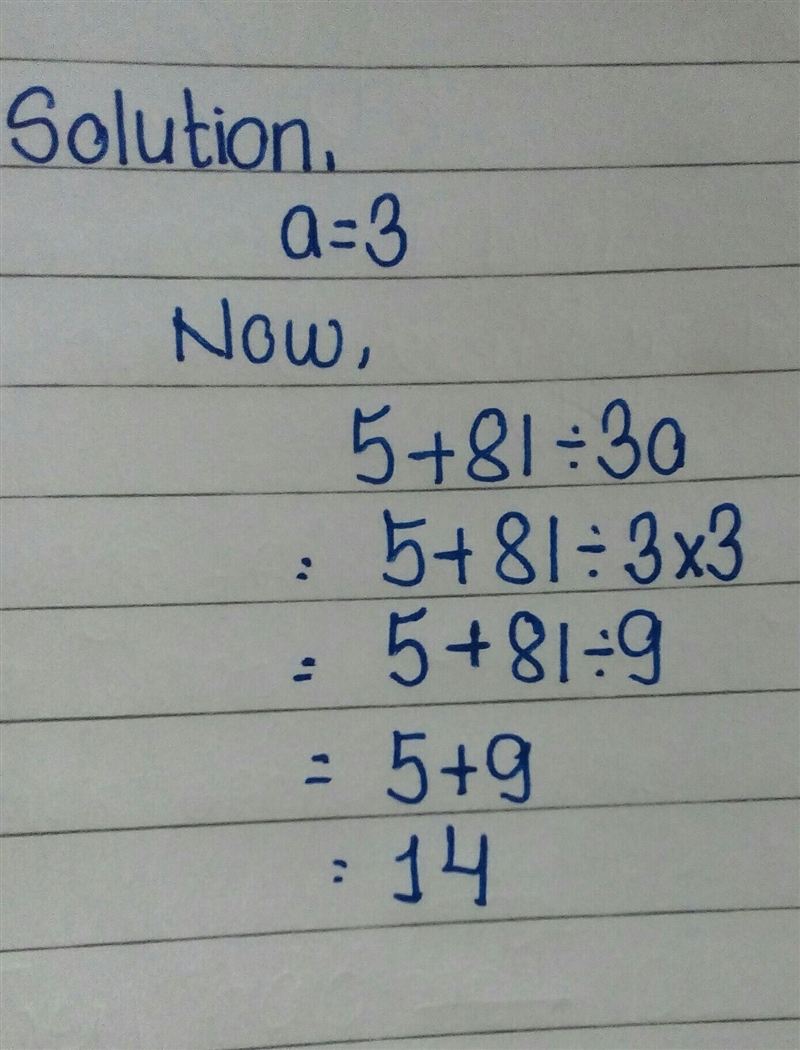 Solution,
a=3
Now,
5+81÷3a
= 5+81÷3x3
= 5+81÷9
= 5+9
= 14